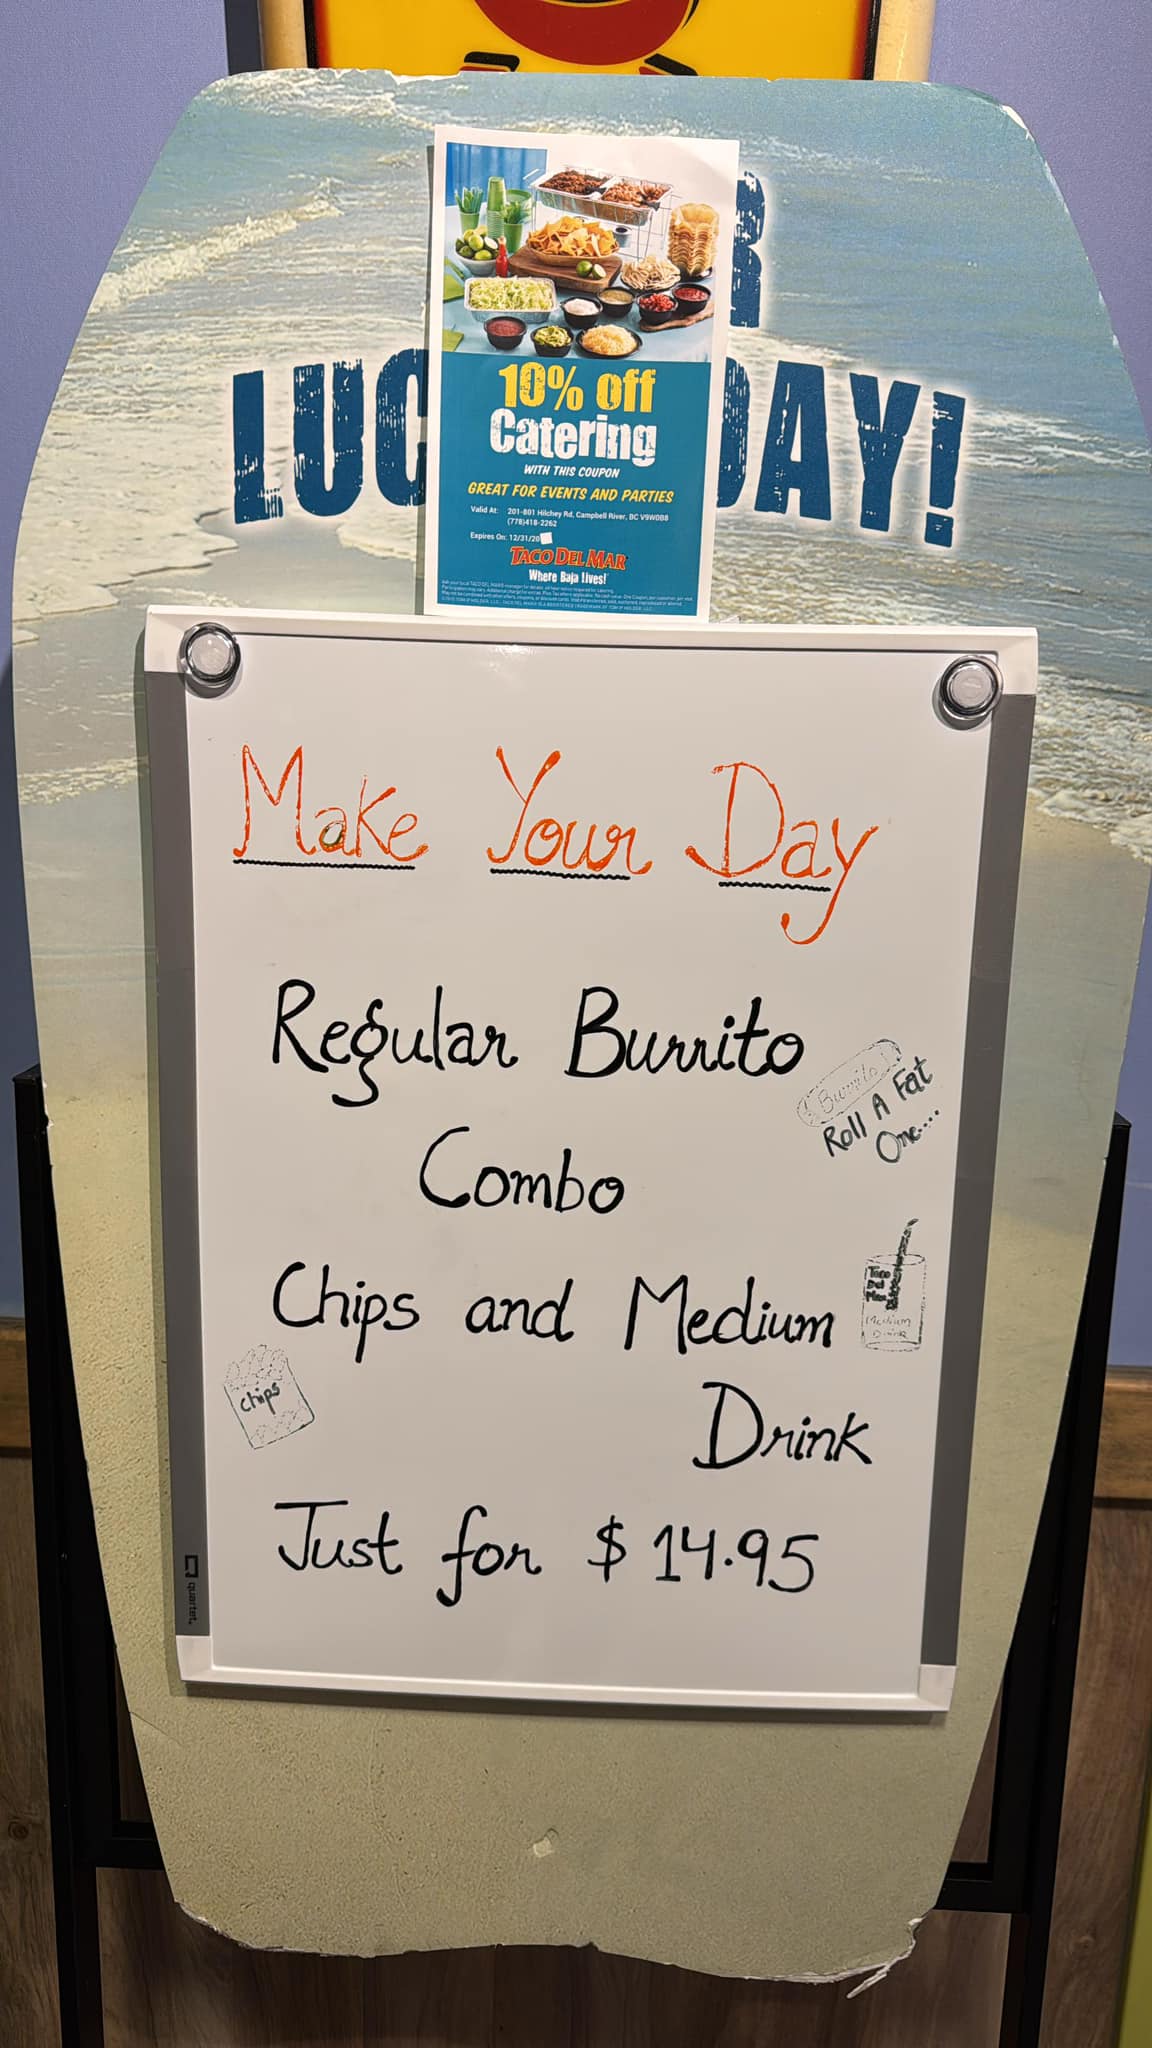 R
LUC DAY!
10% off
Catering
WITH THIS COUPON
GREAT FOR EVENTS AND PARTIES
Valid At: 201-801 Hilchey Rd, Campbell River, BC V9W0B8
(778)418-2262
Expires On: 12/31/20
TACO DEL MAR
Where Baja Lives!
Make Your Day
Regular Burrito
Burrito
Roll A Fat
One....
Combo
Chips and Medium
Taco
Del
Mar
Medium
Drink
Chips
Drink
Just for $14.95
quartet